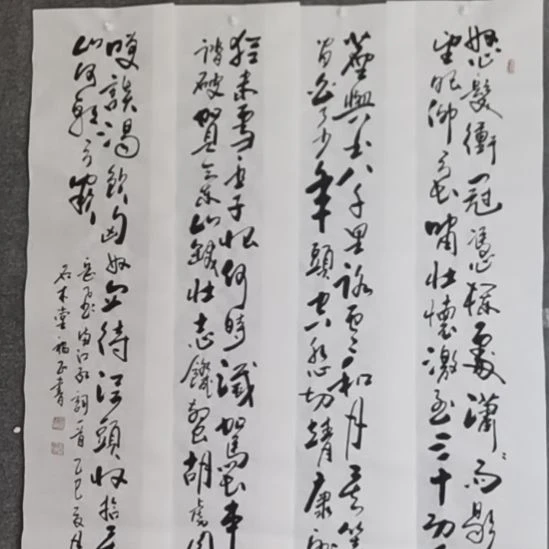 怒髮衝冠憑欄處瀟瀟雨歇
望眼仰天長嘯壯懷激烈三十功
塵與土八千里路雲和月莫等
閒白了少年頭空悲切靖康恥
猶未雪臣子恨何時滅駕長車
踏破賀蘭山缺壯志饑餐胡虜肉
咲談渴飲匈奴血待從頭收拾舊
山河朝天闕
岳飛滿江紅詞一首乙巳夏月
石木堂福正書